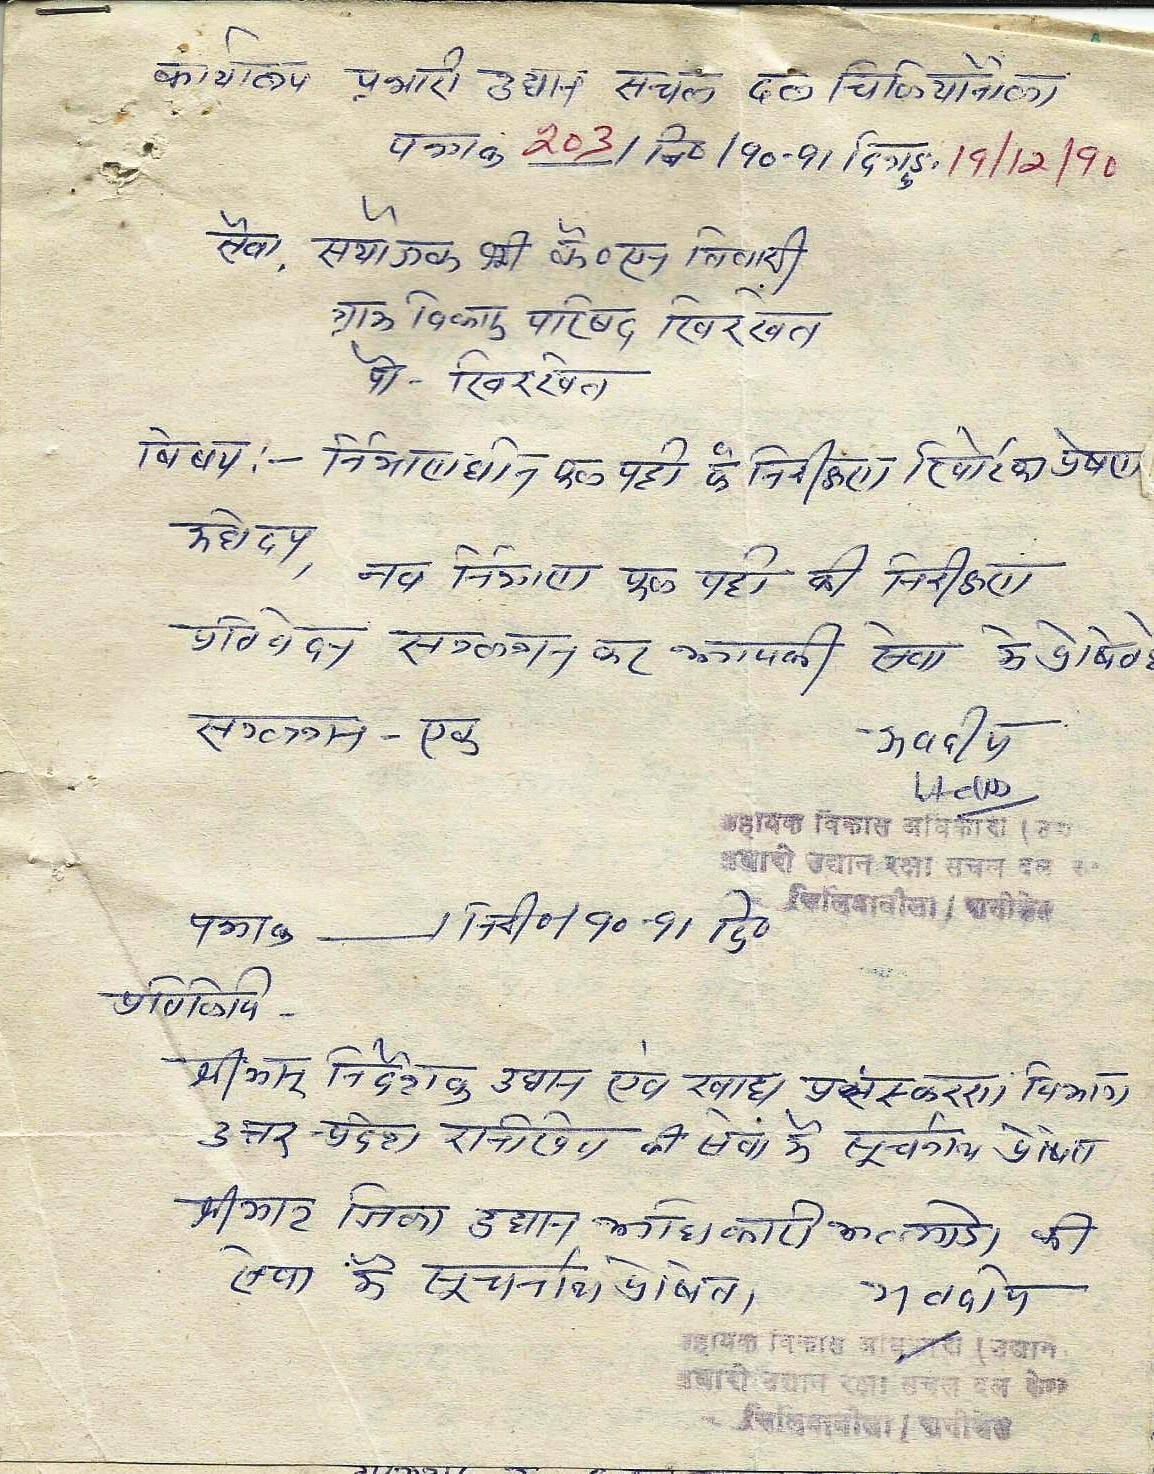 कार्यालय प्रभारी उद्यान सचल दल चिलियानौला
पत्रांक 203 / नि0 / 90-91 दिनाङ्क 19/12/90
सेवा, संयोजक श्री के0 एन तिवारी
ग्राम विकास परिषद खिरखेत
पो - खिरखेत
विषय :- निर्माणाधीन फल पट्टी के निरीक्षण रिपोर्ट का प्रेषण
महोदय,
नव निर्माण फल पट्टी की निरीक्षण
प्रतिवेदन संलग्न कर आपकी सेवा मे प्रेषित है
संलग्न - एक
भवदीय
सहायक विकास अधिकारी (उद्यान
प्रभारी उद्यान रक्षा सचल दल
चिलियानौला / रानीखेत
पत्रांक ____ / निरी0 / 90-91 दि0
प्रतिलिपि -
श्रीमान् निदेशक उद्यान एवं खाद्य प्रसंस्करण विभाग
उत्तर प्रदेश रानीखेत की सेवा मे सूचनार्थ प्रेषित
श्रीमान जिला उद्यान अधिकारी अल्मोड़ा की
सेवा मे सूचनार्थ प्रेषित।
भवदीय
सहायक विकास अधिकारी (उद्यान
प्रभारी उद्यान रक्षा सचल दल केन्द्र
चिलियानौला / रानीखेत